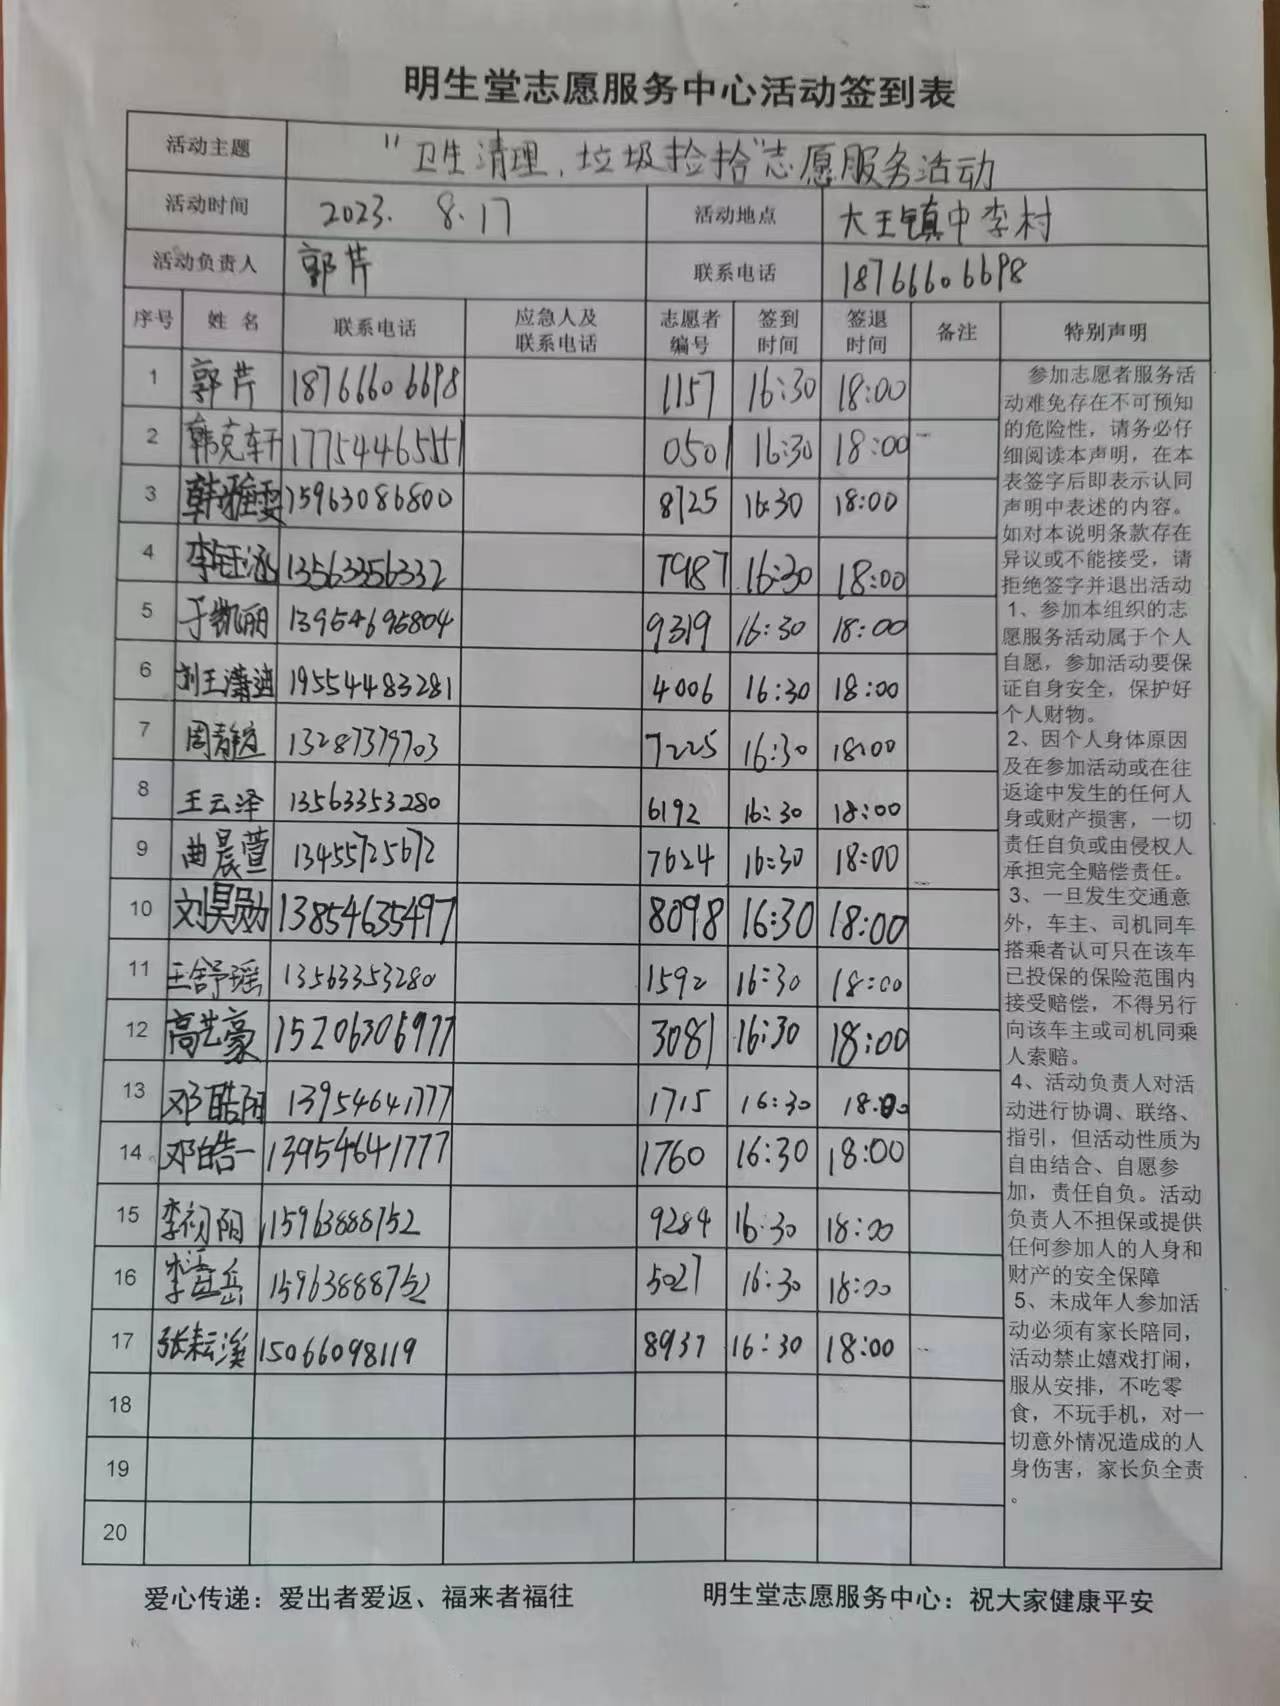 明生堂志愿服务中心活动签到表
活动主题 "卫生清理、垃圾捡拾"志愿服务活动
活动时间 2023. 8.17 活动地点 大王镇中李村
活动负责人 郭芹 联系电话 18766606698
序号 姓名 联系电话 应急人及联系电话 志愿者编号 签到时间 签退时间 备注 特别声明
1 郭芹 18766606698 1157 16:30 18:00
2 韩克轩 17754465551 0501 16:30 18:00
3 韩雅雯 15963086800 8725 16:30 18:00
4 李钰涵 13563356332 7987 16:30 18:00
5 于凯丽 13954695804 9319 16:30 18:00
6 刘王潇迪 19554483281 4006 16:30 18:00
7 周静萱 13287379703 7225 16:30 18:00
8 王云泽 13563353280 6192 16:30 18:00
9 曲晨萱 13455725672 7624 16:30 18:00
10 刘昊勋 13854635497 8098 16:30 18:00
11 王舒瑶 13563353280 1592 16:30 18:00
12 高艺豪 15206306977 3081 16:30 18:00
13 邓皓阳 13954641777 1715 16:30 18:00
14 邓皓一 13954641777 1760 16:30 18:00
15 李初阳 15963888752 9284 16:30 18:00
16 李岳 15963888752 5027 16:30 18:00
17 张耘溪 15066098119 8937 16:30 18:00
18
19
20
参加志愿者服务活
动难免存在不可预知
的危险性，请务必仔
细阅读本声明，在本
表签字后即表示认同
声明中表述的内容。
如对本说明条款存在
异议或不能接受，请
拒绝签字并退出活动
1、参加本组织的志
愿服务活动属于个人
自愿，参加活动要保
证自身安全，保护好
个人财物。
2、因个人身体原因
及在参加活动或在往
返途中发生的任何人
身或财产损害，一切
责任自负或由侵权人
承担完全赔偿责任。
3、一旦发生交通意
外，车主、司机同车
搭乘者认可只在该车
已投保的保险范围内
接受赔偿，不得另行
向该车主或司机同乘
人索赔。
4、活动负责人对活
动进行协调、联络、
指引，但活动性质为
自由结合、自愿参
加，责任自负。活动
负责人不担保或提供
任何参加人的人身和
财产的安全保障
5、未成年人参加活
动必须有家长陪同，
活动禁止嬉戏打闹，
服从安排，不吃零
食，不玩手机，对一
切意外情况造成的人
身伤害，家长负全责
。
爱心传递：爱出者爱返、福来者福往 明生堂志愿服务中心：祝大家健康平安